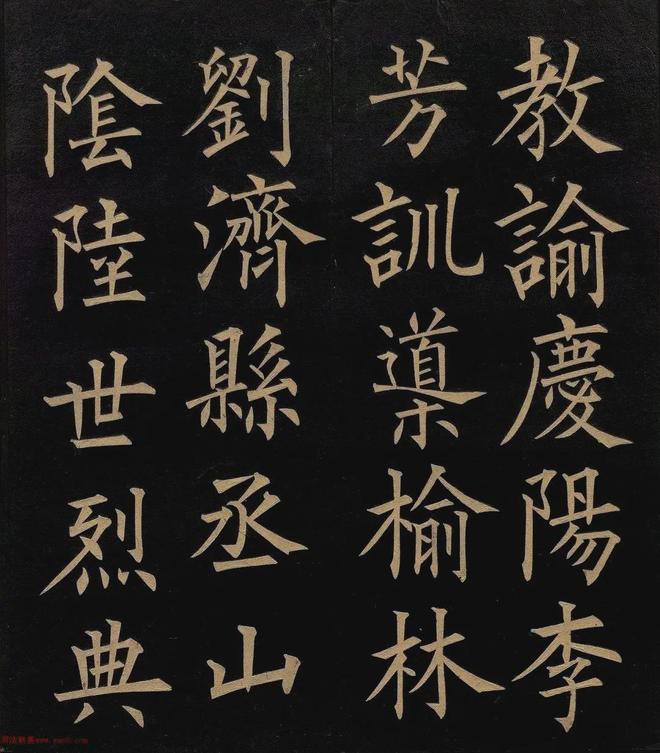 教諭慶陽李
芳訓導榆林
劉濟縣丞山
陰陸世烈典